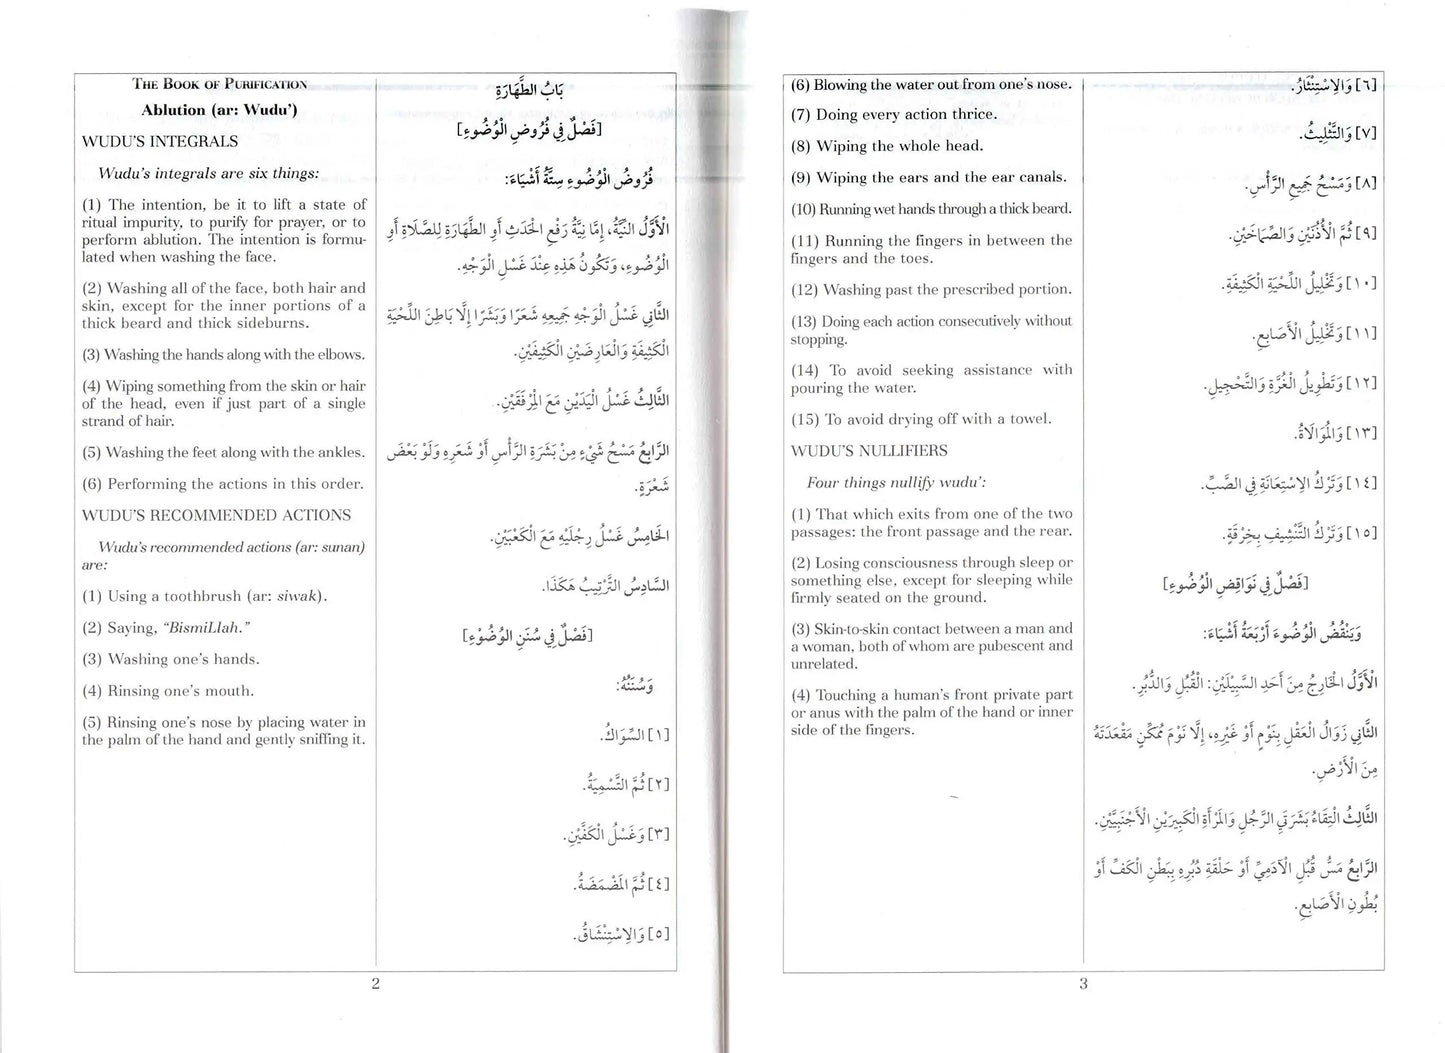 THE BOOK OF PURIFICATION
Ablution (ar: Wudu’)
WUDU’S INTEGRALS
Wudu’s integrals are six things:
(1) The intention, be it to lift a state of
ritual impurity, to purify for prayer, or to
perform ablution. The intention is formu-
lated when washing the face.
(2) Washing all of the face, both hair and
skin, except for the inner portions of a
thick beard and thick sideburns.
(3) Washing the hands along with the elbows.
(4) Wiping something from the skin or hair
of the head, even if just part of a single
strand of hair.
(5) Washing the feet along with the ankles.
(6) Performing the actions in this order.
WUDU’S RECOMMENDED ACTIONS
Wudu’s recommended actions (ar: sunan)
are:
(1) Using a toothbrush (ar: siwak).
(2) Saying, “BismiLlah.”
(3) Washing one’s hands.
(4) Rinsing one’s mouth.
(5) Rinsing one’s nose by placing water in
the palm of the hand and gently sniffing it.
بَابُ الطَّهَارَةِ
[فَصْلٌ فِي فُرُوضِ الْوُضُوءِ]
فُرُوضُ الْوُضُوءِ سِتَّةُ أَشْيَاءَ:
الْأَوَّلُ النِّيَّةُ، إِمَّا نِيَّةُ رَفْعِ الْحَدَثِ أَوِ الطَّهَارَةِ لِلصَّلَاةِ أَوِ
الْوُضُوءِ، وَتَكُونُ هَذِهِ عِنْدَ غَسْلِ الْوَجْهِ.
الثَّانِي غَسْلُ الْوَجْهِ جَمِيعِهِ شَعَرًا وَبَشَرًا إِلَّا بَاطِنَ اللِّحْيَةِ
الْكَثِيفَةِ وَالْعَارِضَيْنِ الْكَثِيفَيْنِ.
الثَّالِثُ غَسْلُ الْيَدَيْنِ مَعَ الْمِرْفَقَيْنِ.
الرَّابِعُ مَسْحُ شَيْءٍ مِنْ بَشَرَةِ الرَّأْسِ أَوْ شَعَرِهِ وَلَوْ بَعْضَ
شَعْرَةٍ.
الْخَامِسُ غَسْلُ رِجْلَيْهِ مَعَ الْكَعْبَيْنِ.
السَّادِسُ التَّرْتِيبُ هَكَذَا.
[فَصْلٌ فِي سُنَنِ الْوُضُوْءِ]
وَسُنَنُهُ:
[١] السِّوَاكُ.
[٢] ثُمَّ التَّسْمِيَةُ.
[٣] وَغَسْلُ الْكَفَّيْنِ.
[٤] ثُمَّ الْمَضْمَضَةُ.
[٥] وَالِاسْتِنْشَاقُ.
2
(6) Blowing the water out from one’s nose.
(7) Doing every action thrice.
(8) Wiping the whole head.
(9) Wiping the ears and the ear canals.
(10) Running wet hands through a thick beard.
(11) Running the fingers in between the
fingers and the toes.
(12) Washing past the prescribed portion.
(13) Doing each action consecutively without
stopping.
(14) To avoid seeking assistance with
pouring the water.
(15) To avoid drying off with a towel.
WUDU’S NULLIFIERS
Four things nullify wudu’:
(1) That which exits from one of the two
passages: the front passage and the rear.
(2) Losing consciousness through sleep or
something else, except for sleeping while
firmly seated on the ground.
(3) Skin-to-skin contact between a man and
a woman, both of whom are pubescent and
unrelated.
(4) Touching a human’s front private part
or anus with the palm of the hand or inner
side of the fingers.
[٦] وَالِاسْتِنْثَارُ.
[٧] وَالتَّثْلِيثُ.
[٨] وَمَسْحُ جَمِيعِ الرَّأْسِ.
[٩] ثُمَّ الْأُذُنَيْنِ وَالصِّمَاخَيْنِ.
[١٠] وَتَخْلِيلُ اللِّحْيَةِ الْكَثِيفَةِ.
[١١] وَتَخْلِيلُ الْأَصَابِعِ.
[١٢] وَتَطْوِيلُ الْغُرَّةِ وَالتَّحْجِيلِ.
[١٣] وَالْمُوَالَاةُ.
[١٤] وَتَرْكُ الِاسْتِعَانَةِ فِي الصَّبِّ.
[١٥] وَتَرْكُ التَّنْشِيفِ بِخِرْقَةٍ.
[فَصْلٌ فِي نَوَاقِضِ الْوُضُوءِ]
وَيَنْقُضُ الْوُضُوءَ أَرْبَعَةُ أَشْيَاءَ:
الْأَوَّلُ الْخَارِجُ مِنَ أَحَدِ السَّبِيلَيْنِ: الْقُبُلِ وَالدُّبُرِ.
الثَّانِي زَوَالُ الْعَقْلِ بِنَوْمٍ أَوْ غَيْرِهِ، إِلَّا نَوْمَ مُمَكِّنٍ مَقْعَدَتَهُ
مِنَ الْأَرْضِ.
الثَّالِثُ الْتِقَاءُ بَشَرَتَيِ الرَّجُلِ وَالْمَرْأَةِ الْكَبِيرَيْنِ الْأَجْنَبِيَّيْنِ.
الرَّابِعُ مَسُّ قُبُلِ الْآدَمِيِّ أَوْ حَلْقَةِ دُبُرِهِ بِبَطْنِ الْكَفِّ أَوْ
بُطُونِ الْأَصَابِعِ.
3